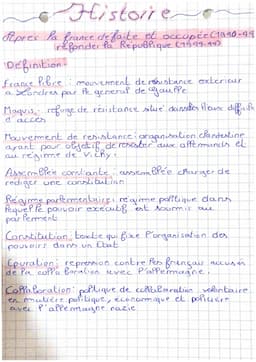 Histoire
Après la france defaite et occupée (1940-44
refonder la République (1944-47)
Définition
France libre : mouvement de résistance exterieur
a Londres par le general de gaulle
Maquis : refuge de résistance situé dans des lieux difficiles
d'accès
Mouvement de resistance : organisation clandestine
ayant pour objectif de resister aux allemands et
au régime de Vichy.
Assemblée constiante : assemblée charger de
rediger une constitution
Régime parlementaire : regime politique dans
lequel le pouvoir executif est soumis au
parlement
Constitution : texte qui fixe l'organisation des
pouvoirs dans un Etat
Epuration : repression contre les français accusés
de la collaboration avec l'allemagne.
Collaboration : politique de collaboration volontaire
en matière politique, économique et policière
avec l'allemagne nazie